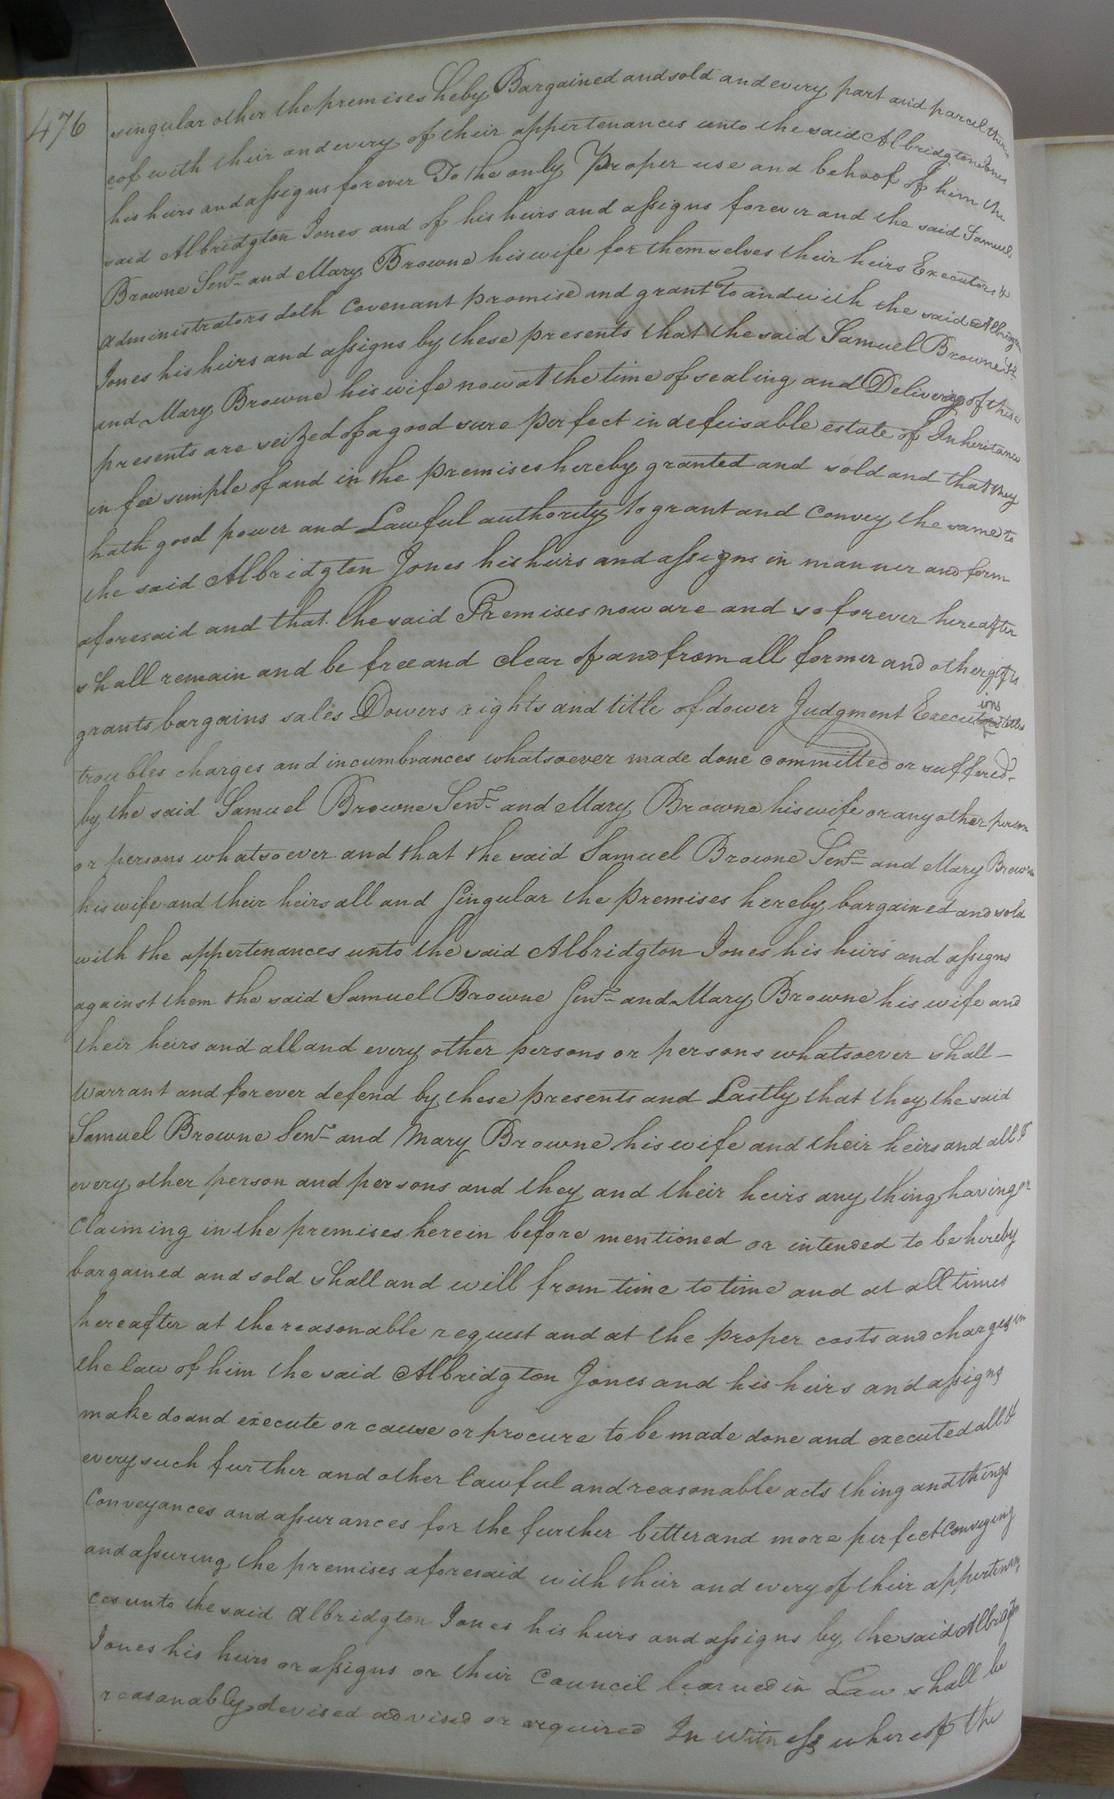 476
singular other the premises heby Bargained and sold and every part and parcel ther
eof with their and every of their appertenances unto the said Albridgton Jones
his heirs and assigns forever To the only Proper use and behoof of him the
said Albridgton Jones and of his heirs and assigns forever and the said Samuel
Browne Senr. and Mary Browne his wife for themselves their heirs Executors &
administrators doth Covenant promise and grant to and with the said Albridgton
Jones his heirs and assigns by these presents that the said Samuel Browne Sr
and Mary Browne his wife now at the time of sealing and Delivery of these
presents are seized of a good sure perfect indefeisable estate of Inheritance
in fee simple of and in the premises hereby granted and sold and that they
hath good power and Lawful authority to grant and convey the same to
the said Albridgton Jones his heirs and assigns in manner and form
aforesaid and that the said Premises now are and so forever hereafter
shall remain and be free and clear of and from all former and other gifts
grants bargains sales Dowers rights and title of dower Judgment Executions titles
troubles charges and incumbrances whatsoever made done committed or suffered
by the said Samuel Browne Senr. and Mary Browne his wife or any other person
or persons whatsoever and that the said Samuel Browne Senr. and Mary Browne
his wife and their heirs all and Singular the premises hereby bargained and sold
with the appertenances unto the said Albridgton Jones his heirs and assigns
against them the said Samuel Browne Senr. and Mary Browne his wife and
their heirs and all and every other persons or persons whatsoever shall
Warrant and forever defend by these presents and Lastly that they the said
Samuel Browne Senr. and Mary Browne his wife and their heirs and all &
every other person and persons and they and their heirs any thing having or
Claiming in the premises herein before mentioned or intended to be hereby
bargained and sold shall and will from time to time and at all times
hereafter at the reasonable request and at the proper costs and charges in
the law of him the said Albridgton Jones and his heirs and assigns
make do and execute or cause or procure to be made done and executed all &
every such further and other lawful and reasonable acts thing and things
Conveyances and assurances for the further better and more perfect Conveying
and assuring the premises aforesaid with their and every of their appertenan
ces unto the said Albridgton Jones his heirs and assigns by the said Albridgton
Jones his heirs or assigns or their Council learned in Law shall be
reasonably devised advised or required In Witness whereof the